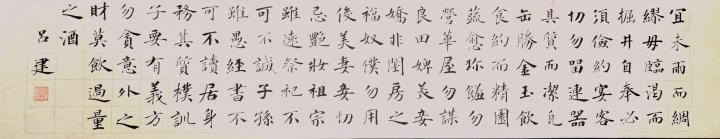 宜未雨而綢
繆毋臨渴而
掘井自奉必
須儉約宴客
切勿留連器
具質而潔瓦
缶勝金玉飲
食約而精園
蔬愈珍饈勿
營華屋勿謀
良田婢美妾
嬌非閨房之
福奴僕勿用
後美妻妾切
忌艷妝祖宗
雖遠祭祀不
可不誠子孫
雖愚經書不
可不讀居身
務其質樸訓
子要有義方
勿貪意外之
財莫飲過量
之酒
呂建